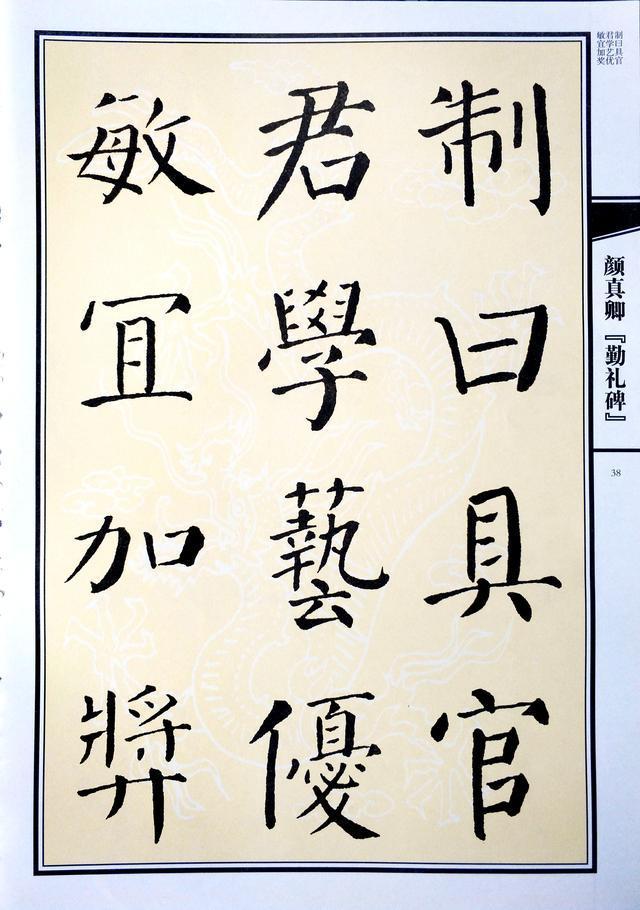 制曰具官
君學藝優
敏冝加獎
制曰具官
君学艺优
敏宜加奖
颜真卿『勤礼碑』
38